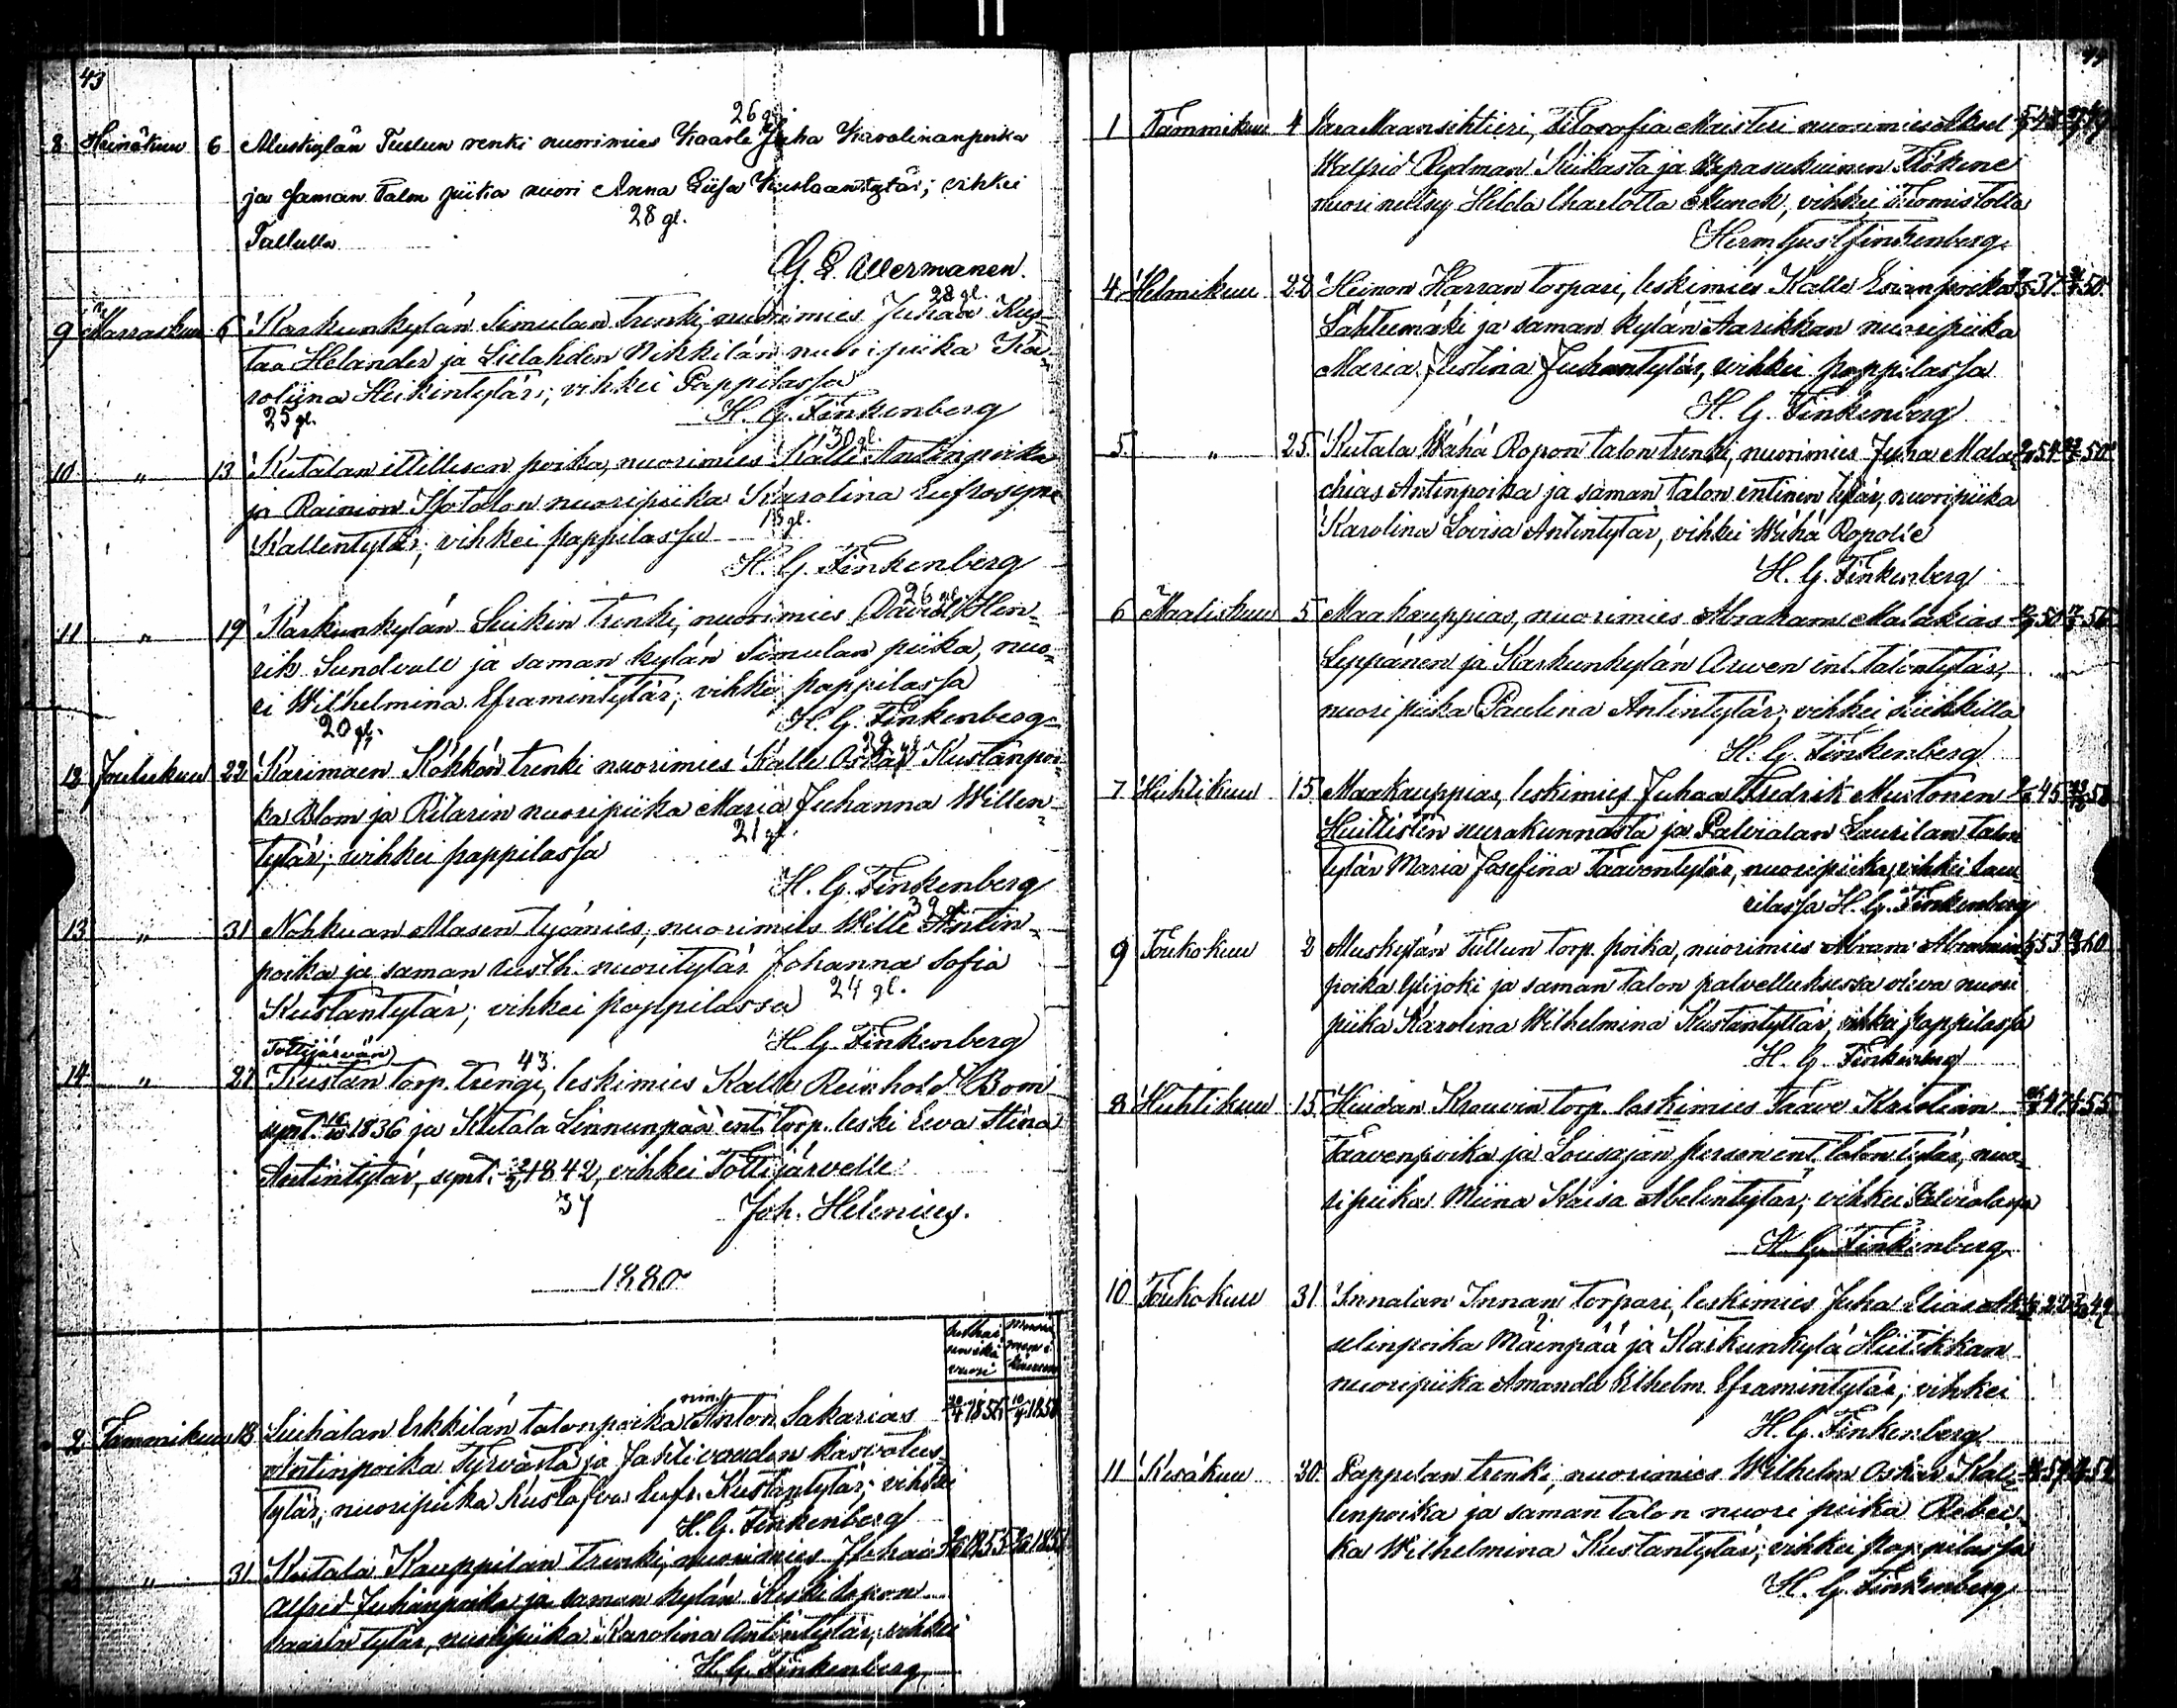 43
26 gl.
8 Heinäkuu 6 Muskylän Tullun renki nuorimies Kaarle Juha Karolinanpoika
ja saman talon piika nuori Anna Liisa Kustaantytär; vihkei
28 gl.
Tullulla
G. E. Allermanen.
28 gl.
9 Marraskuu 6 Karkunkylän Simulan trenki, nuorimies Juhaa Kus-
taa Helander ja Liilahden Nikkilän nuoripiika Ka-
rolina Heikintytär; vihkei Pappilassa
25 gl.
H. G. Finkenberg
30 gl.
10 " 13 Kutalan Millisen poika, nuorimies Kalle Antinpoika
ja Rainion Isotalon nuoripiika Karolina Eufrosyne
Kallentytär; vihkei pappilassa
H. G. Finkenberg
26 gl.
11 " 19 Karkunkylän Leikin trenki, nuorimies David Hen-
rik Sundvall ja saman kylän Simulan piika, nuo-
ri Wilhelmina Eframintytär; vihkei pappilassa
20 gl.
H. G. Finkenberg
12 Joulukuu 22 Karimaen Köhkön trenki nuorimies Kalle Oskar Kustanpoi-
ka Blom ja Ritarin nuoripiika Maria Juhanna Willen-
21 gl.
tytär; vihkei pappilassa
H. G. Finkenberg
39 gl.
13 " 31 Nohkuan Masen työmies, nuorimies Wille Antin-
poika ja saman rusth. nuoritytär Johanna Sofia
24 gl.
Kustantytär; vihkei pappilassa
H. G. Finkenberg
Tottijärvän
43.
14 " 27 Kustan torp. trengi, leskimies Kalle Reinhold Bom
synt. 1836 ja Kutala Linnunpää ent. torp. leski Eeva Stina
Antintytär, synt. 1842, vihkei Tottijärvelle
37
Joh. Helenius.
1880
2 Tammikuu 18 Liuhalan Erkkilän talonpoika nim. Anton Sakarias
Antinpoika Tyrväästä ja Jahtivoudin kasvatus
tytär, nuoripiika Kustafva Eufr. Kustantytär; vihkei
H. G. Finkenberg
3 " 31 Kutala Kauppilan trenki, nuorimies Juhaa
Alfred Juhanpoika ja saman kylän Keski Ropon
vaarin tytär, nuoripiika Karolina Antintytär; vihkei
H. G. Finkenberg
1 Tammikuu 4 Vara Maansihtieri, Filosofia Maisteri nuorimies Aksel
Walfrid Rydman Kiikasta ja Vapasukuinen Frökene
nuori neitsy Hilda Charlotta Munck, vihkei Tuomistolla
Herm Gust Finkenberg
4 Helmikuu 22 Heinon Harran torpari, leskimies Kalle Eevanpoika 37 50
Lahteenmäki ja saman kylän Aarikkan nuoripiika
Maria Justina Juhantytär, vihkei pappilassa
H. G. Finkenberg
5. " 25. Kutala Wähä Ropon talon trenki, nuorimies Juha Mala-
chias Antinpoika ja saman talon entinen tytär, nuoripiika
Karolina Lovisa Antintytär, vihkei Wähä Ropolle
H. G. Finkenberg
6 Maaliskuu 5 Maakauppias, nuorimies Abraham Malakias 50 56
Leppänen ja Karkunkylän Arwen ent. talontytär,
nuoripiika Paulina Antintytär; vihkei
H. G. Finkenberg
7 Huhtikuu 15 Maakauppias, leskimies Juhaa Fredrik Mustonen 45
Huittisten seurakunnasta ja Palvialan Laurilan talon
tytär Maria Josefina Taavontytär, nuoripiika, vihkei Lau-
rilassa H. G. Finkenberg
9 Toukokuu 2 Muskylän Tullun torp. poika, nuorimies Abram Abramin 53 60
poika Ylijoki ja saman talon palvelluksessa oleva nuori
piika Karolina Wilhelmina Kustantytär, vihkei pappilassa
H. G. Finkenberg
8 Huhtikuu 15 Hiuoan Krouvin torp. leskimies Taave Kristian 47 55
Taavenpoika ja Lousajan ent. talontytär, nuo-
ripiika Miina Kaisa Abelintytär; vihkei Palvialassa
H. G. Finkenberg
10 Toukokuu 31 Innalan Innan torpari, leskimies Juha Elias Ak-
selinpoika Mäenpää ja Karkunkylä Hiitikkan
nuoripiika Amanda Wilhelm. Eframintytär; vihkei
H. G. Finkenberg
11 Kesäkuu 30. Pappilan trenki, nuorimies Wilhelm Oskar Kal-
lenpoika ja saman talon nuori piika Rebei-
ka Wilhelmina Kustantytär; vihkei pappilassa
H. G. Finkenberg